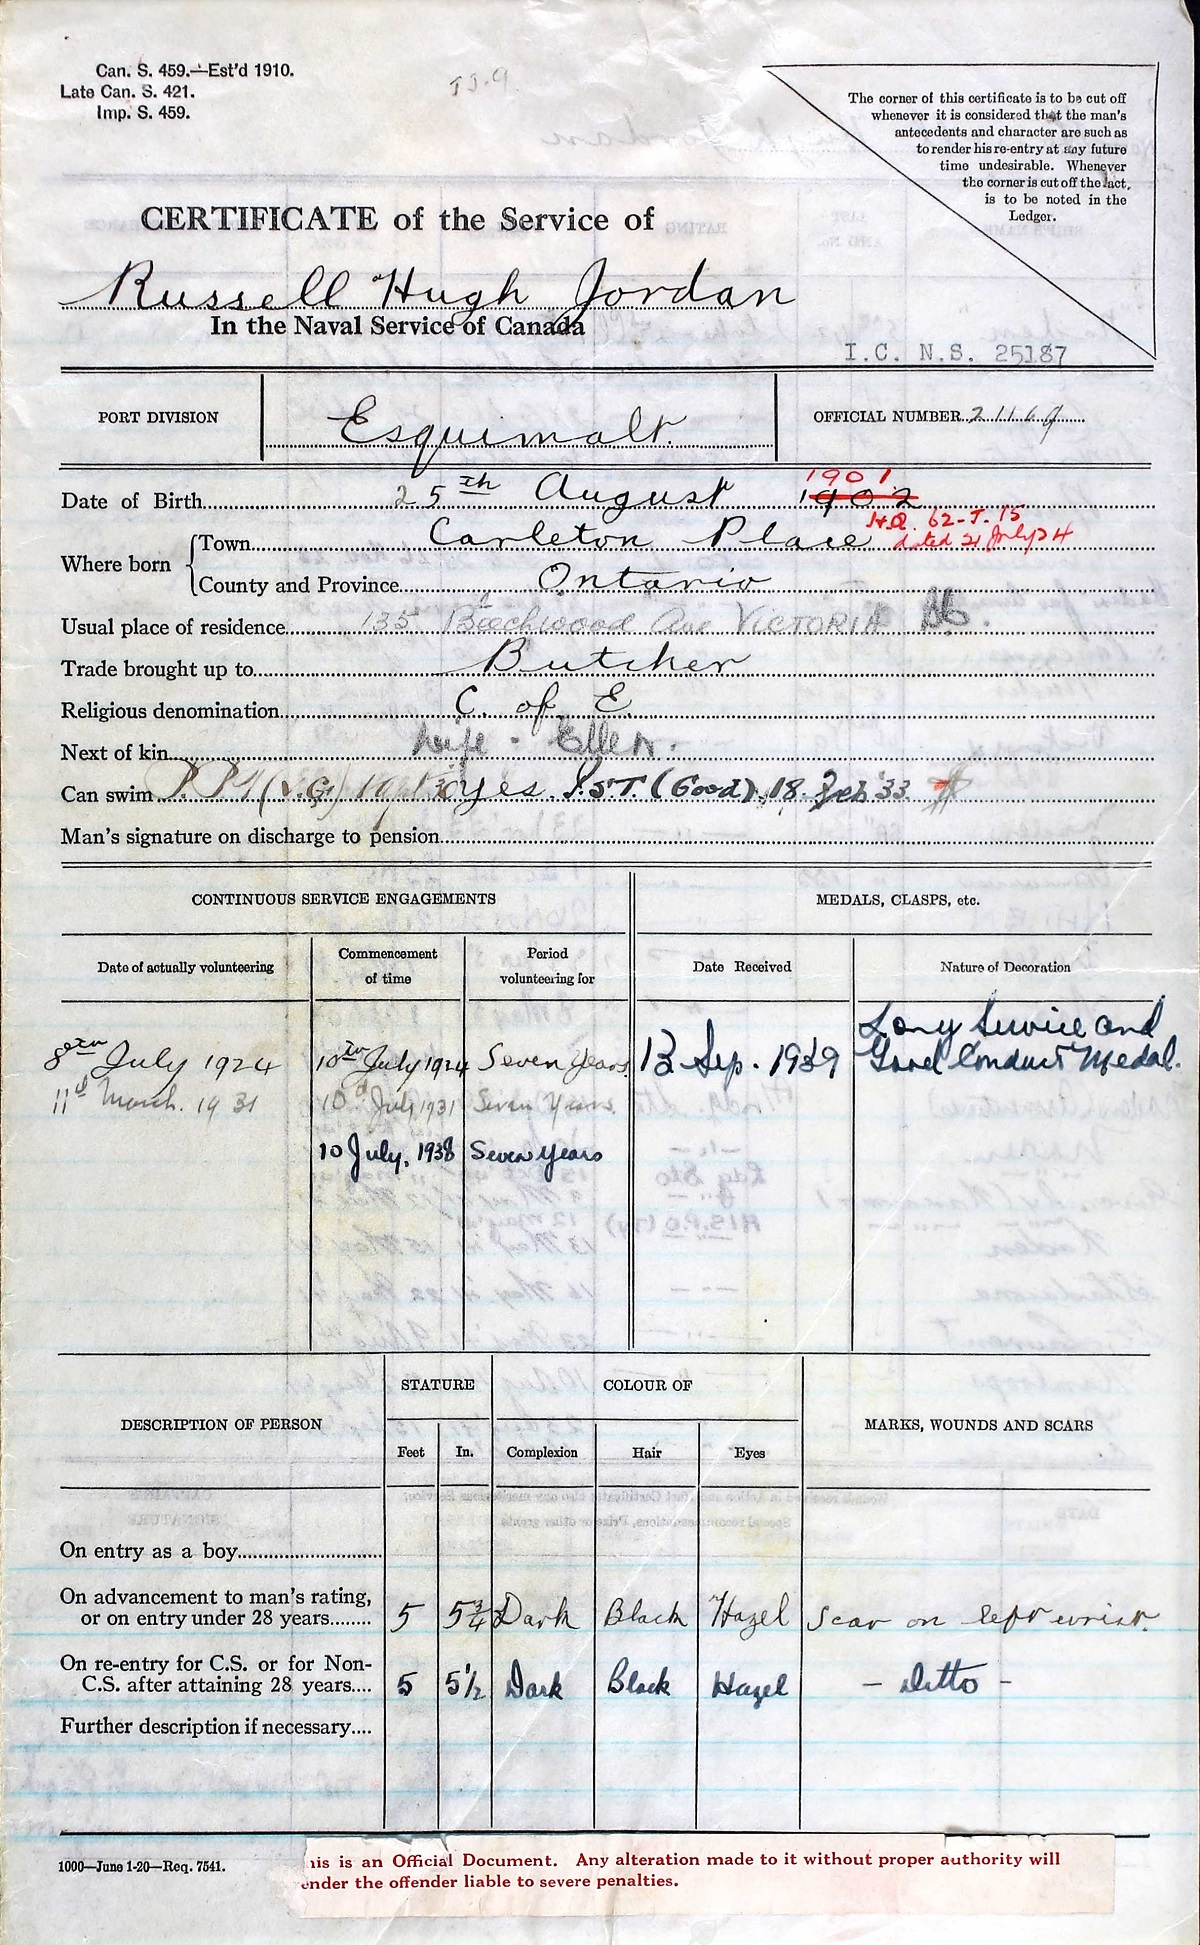 Can. S. 459.—Est'd 1910.
Late Can. S. 421.
Imp. S. 459.
The corner of this certificate is to be cut off
whenever it is considered that the man's
antecedents and character are such as
to render his re-entry at any future
time undesirable. Whenever
the corner is cut off the fact,
is to be noted in the
Ledger.
CERTIFICATE of the Service of
Russell Hugh Jordan
In the Naval Service of Canada
I.C. N.S. 25187
PORT DIVISION Esquimalt. OFFICIAL NUMBER 21169
1901
Date of Birth 25th August 1902
H.Q. 62-J-15
dated 21 July 24
Where born
Town Carleton Place
County and Province Ontario
Usual place of residence 135 Beechwood Ave VICTORIA
Trade brought up to Butcher
Religious denomination C. of E.
Next of kin Wife - Ellen.
Can swim P.P.T (V.G.) yes. P.S.T. (Good). 18. Feb '33
Man's signature on discharge to pension
CONTINUOUS SERVICE ENGAGEMENTS MEDALS, CLASPS, etc.
Date of actually volunteering Commencement of time Period volunteering for Date Received Nature of Decoration
Long Service and
8th July 1924 10th July 1924 Seven Years 13 Sep. 1939 Good Conduct Medal.
11th March. 1931 10 July 1931 Seven Years
10 July, 1938 Seven years
DESCRIPTION OF PERSON STATURE COLOUR OF MARKS, WOUNDS AND SCARS
Feet In. Complexion Hair Eyes
On entry as a boy
On advancement to man's rating,
or on entry under 28 years 5 5¾ Dark Black Hazel Scar on left wrist.
On re-entry for C.S. or for Non-
C.S. after attaining 28 years 5 5½ Dark Black Hazel - Ditto -
Further description if necessary
1000—June 1-20—Req. 7541.
his is an Official Document. Any alteration made to it without proper authority will
ender the offender liable to severe penalties.